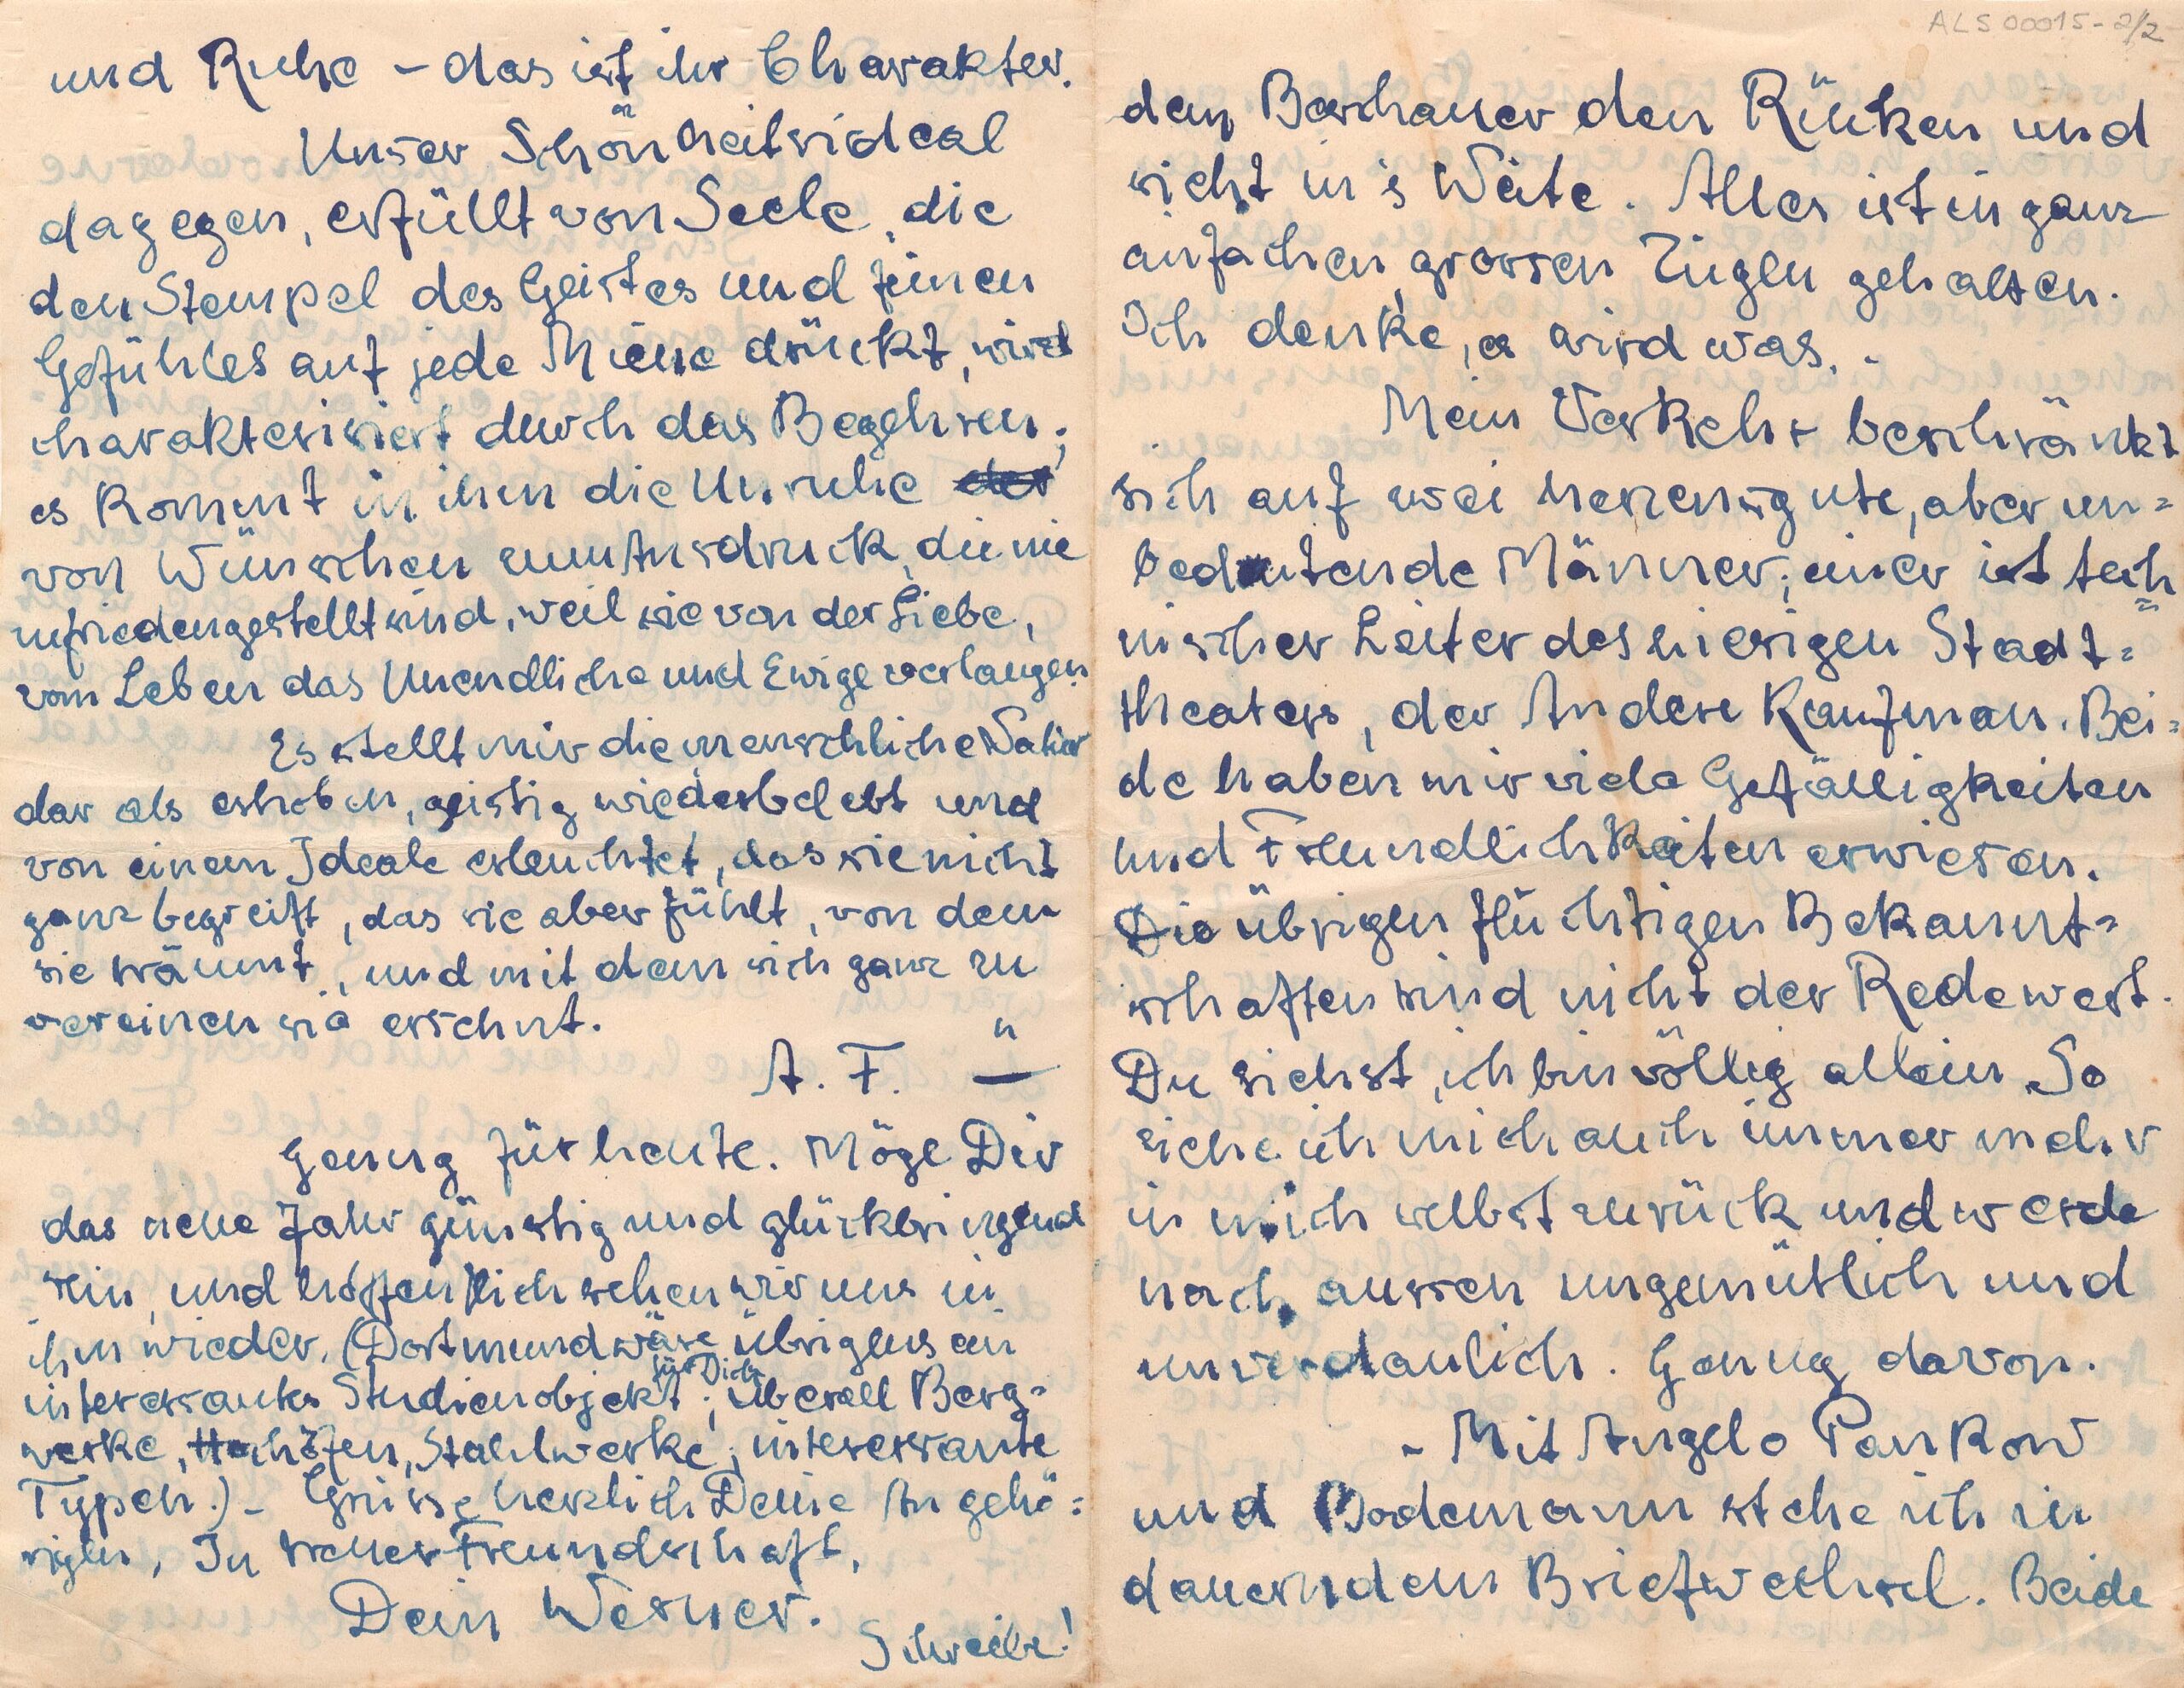 und Ruhe – das ist ihr Charakter.
Unser Schönheitsideal
dagegen, erfüllt von Seele, die
den Stempel des Geistes und feinen
Gefühles auf jede Miene drückt, wird
charakterisiert durch das Begehren;
es kommt in ihm die Unruhe der
von Wünschen zum Ausdruck, die nie
zufriedengestellt sind, weil sie von der Liebe,
vom Leben das Unendliche und Ewige verlangen
Es stellt mir die menschliche Natur
dar als erhoben, geistig wiederbelebt und
von einem Ideale erleuchtet, das sie nicht
ganz begreift, das sie aber fühlt, von dem
sie träumt, und mit dem sich ganz zu
vereinen sie ersehnt.
A. F. “ —
Genug für heute. Möge Dir
das neue Jahr günstig und glückbringend
sein, und hoffentlich sehen wir uns in
ihm wieder. (Dortmund wäre übrigens ein
interessantes Studienobjekt für Dich; überall Berg=
werke, Hochöfen, Stahlwerke; interessante
Typen.) – Grüsse herzlich Deine Angehö=
rigen, In treuer Freundschaft,
Dein Werner.
Schreibe!
ALS 00015-2/2
dem Beschauer den Rücken und
sieht in's Weite. Alles ist in ganz
einfachen, grossen Zügen gehalten.
Ich denke, es wird was. -
Mein Verkehr beschränkt
sich auf zwei herzensgute, aber un=
bedeutende Männer; einer ist tech=
nischer Leiter des hiesigen Stadt=
theaters, der Andere Kaufman. Bei=
de haben mir viele Gefälligkeiten
und Freundlichkeiten erwiesen.
Die übrigen flüchtigen Bekannt=
schaften sind nicht der Rede wert.
Du siehst, ich bin völlig allein. So
ziehe ich mich auch immer mehr
in mich selbst zurück und werde
nach aussen ungemütlich und
unverdaulich. Genug davon.
- Mit Angelo Pankow
und Bodemann stehe ich in
dauerndem Briefwechsel. Beide